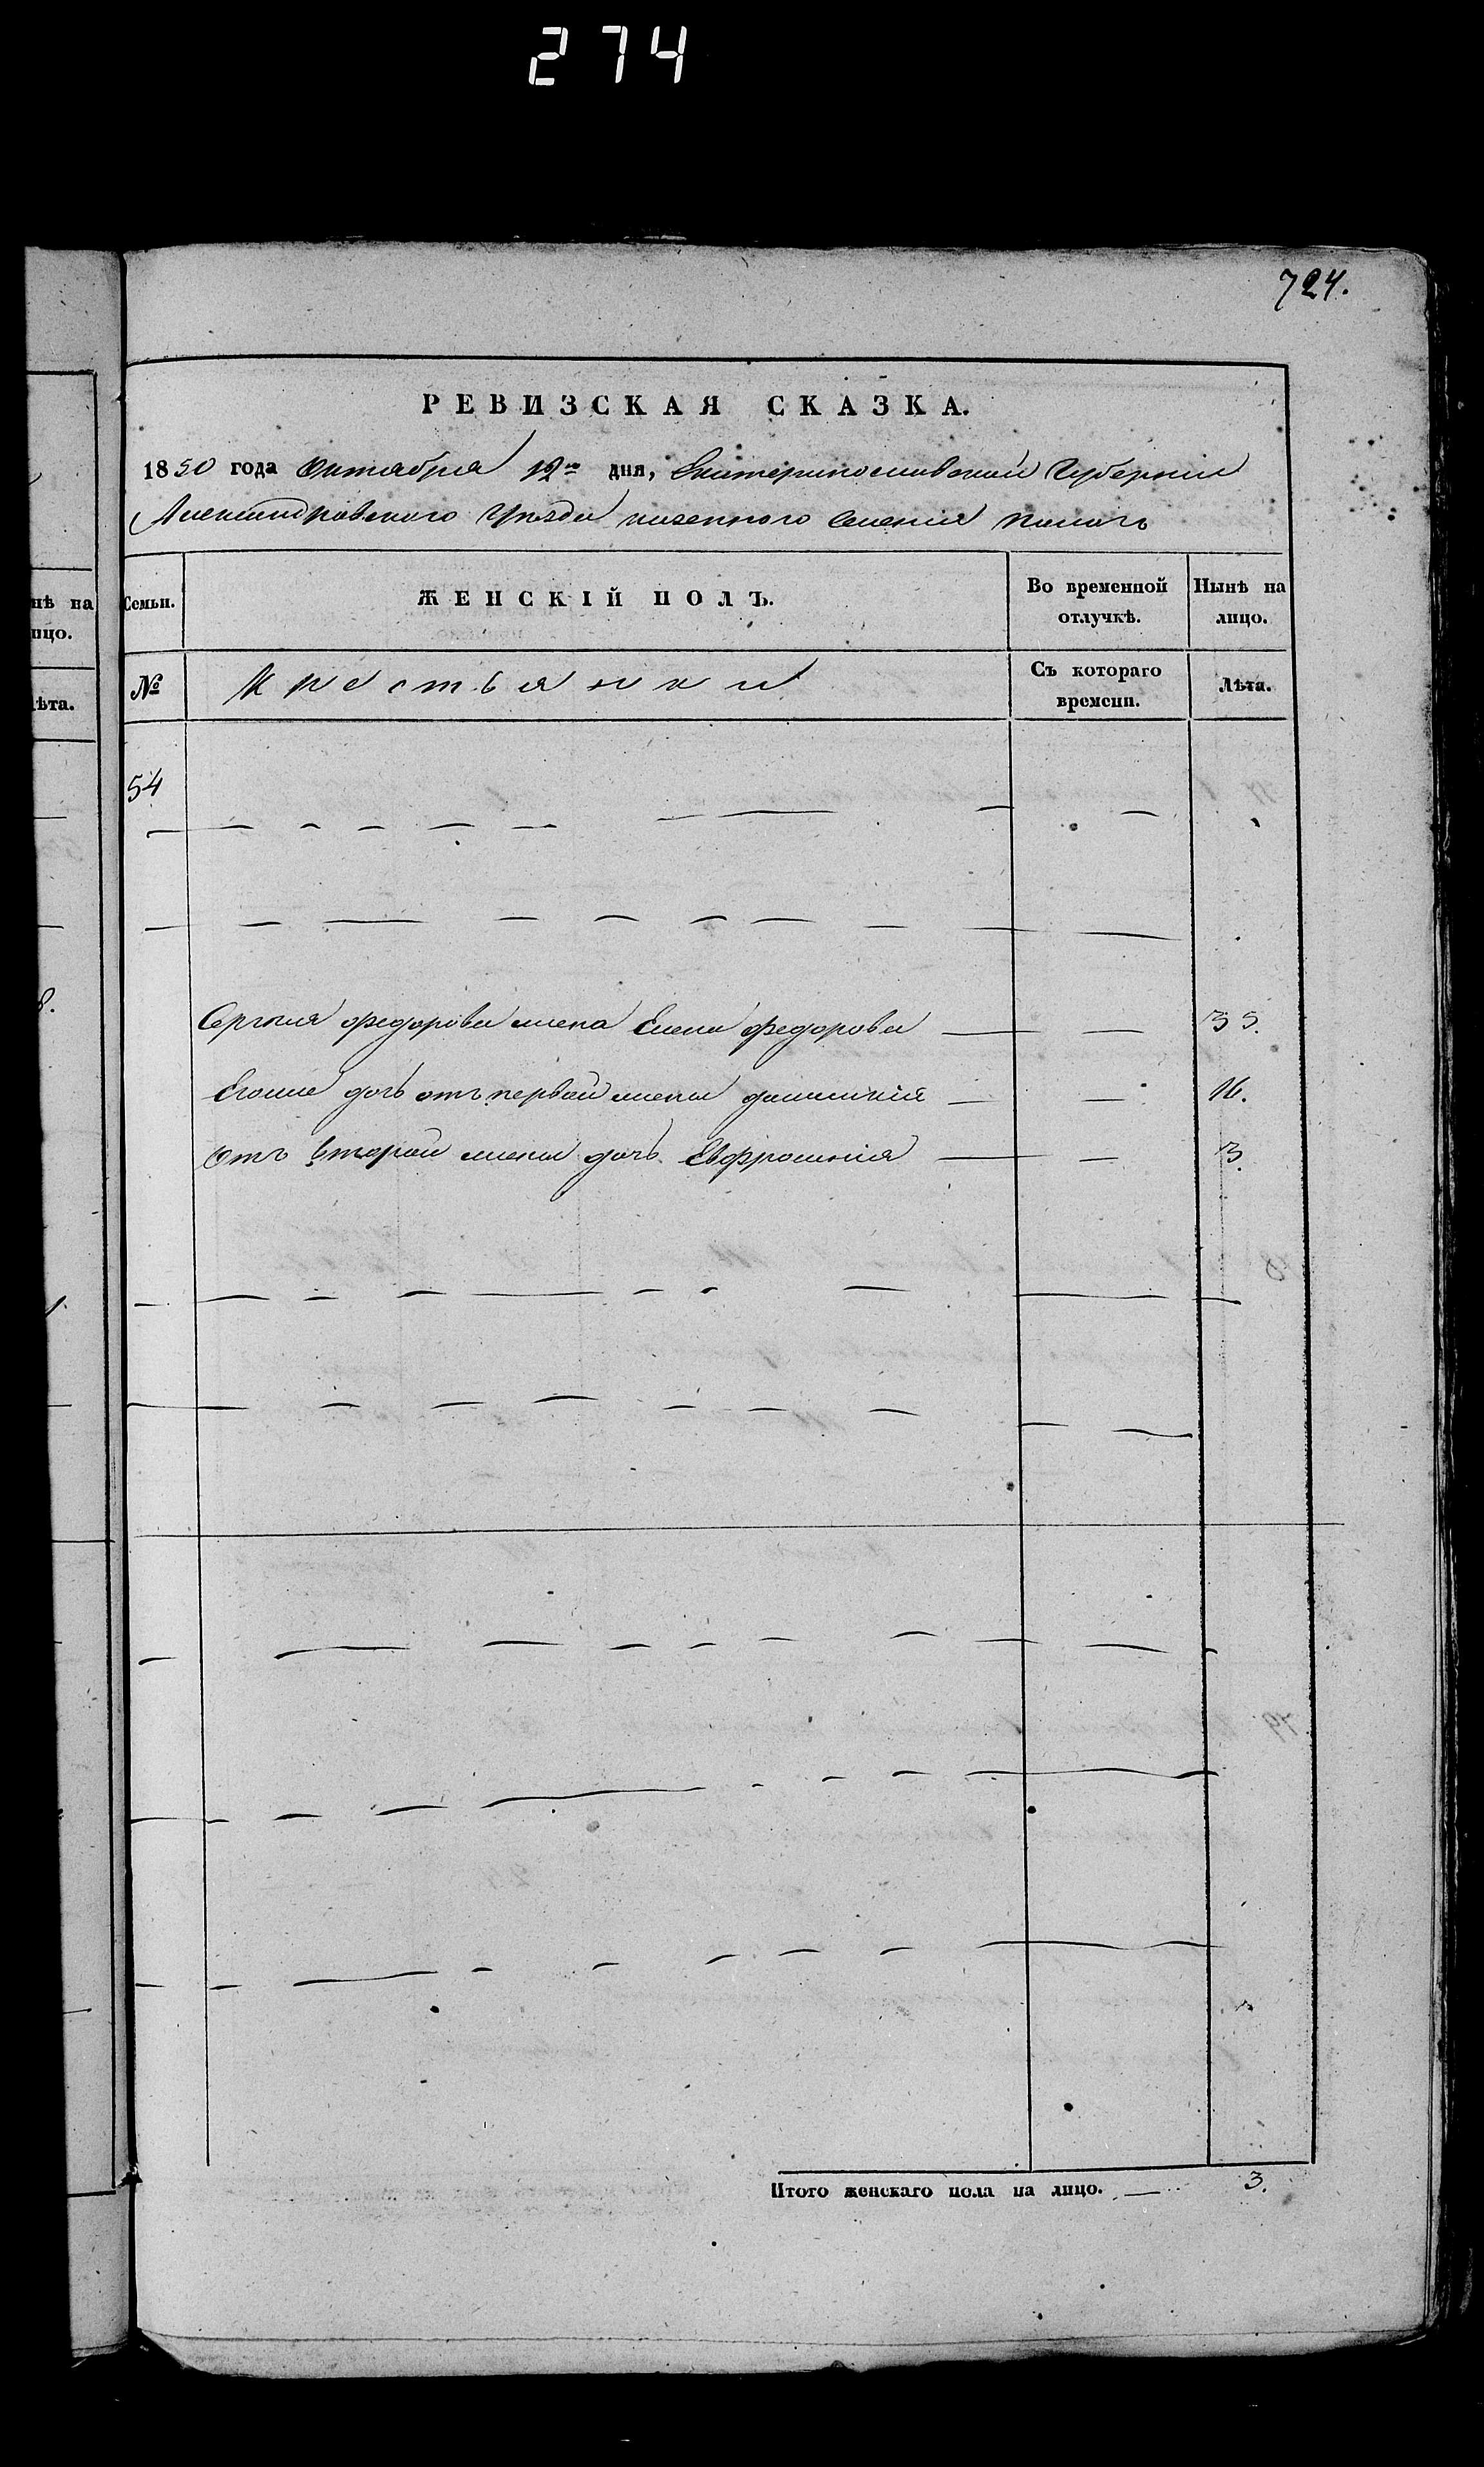 274
724.
РЕВИЗСКАЯ СКАЗКА.
1850 года Октября 12го дня, Екатеринославской Губернии
Александровского Уезда казенного Селения
нѣ на
ицо.
ѣта.
Семьи.
ЖЕНСКІЙ ПОЛЪ.
Во временной
отлучкѣ.
Нынѣ на
лицо.
№
Крестьянки
Съ котораго
времени.
Лѣта.
54
Сергѣя Федорова жена Елена Федорова — — 35.
Егоже дочь отъ первой жены — — 16.
Отъ второй жены дочь Евфросинія — — 3.
Итого женскаго пола на лицо. — 3.